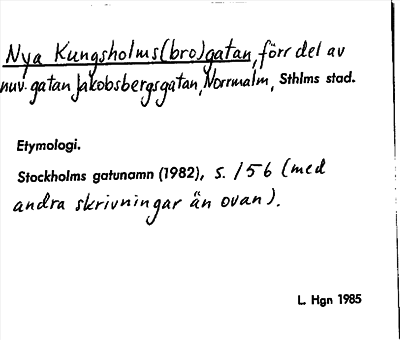 Nya Kungsholms(bro)gatan, förr del av
nuv. gatan Jakobsbergsgatan, Norrmalm, Sthlms stad.
Etymologi.
Stockholms gatunamn (1982), s. 156 (med
andra skrivningar än ovan).
L. Hgn 1985